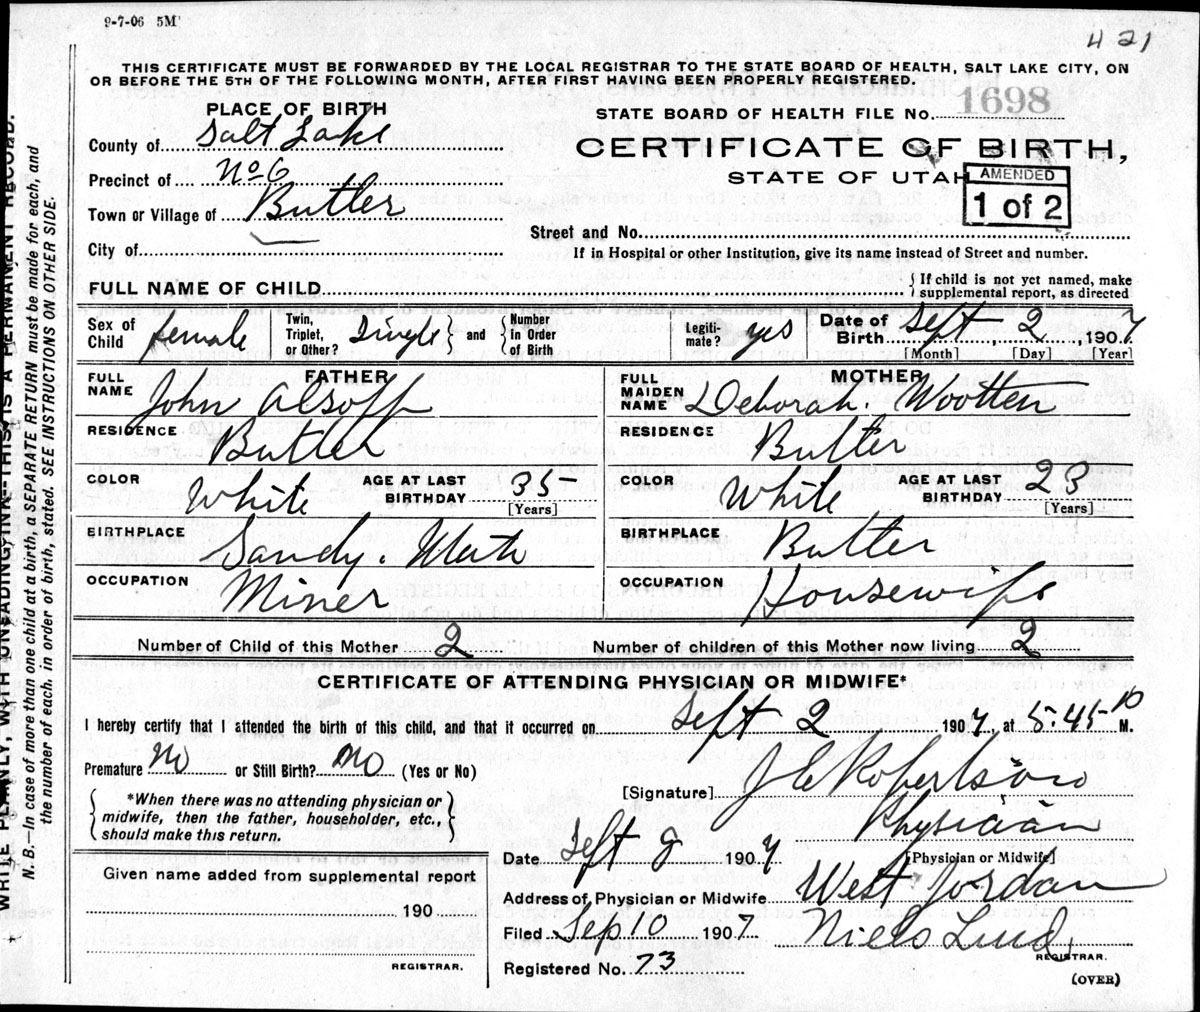 9-7-06 5M
421
THIS CERTIFICATE MUST BE FORWARDED BY THE LOCAL REGISTRAR TO THE STATE BOARD OF HEALTH, SALT LAKE CITY, ON
OR BEFORE THE 5TH OF THE FOLLOWING MONTH, AFTER FIRST HAVING BEEN PROPERLY REGISTERED.
PLACE OF BIRTH
County of Salt Lake
Precinct of No 6
Town or Village of Butler
City of
STATE BOARD OF HEALTH FILE No. 1698
CERTIFICATE OF BIRTH,
STATE OF UTAH
AMENDED
1 of 2
Street and No.
If in Hospital or other Institution, give its name instead of Street and number.
FULL NAME OF CHILD
{ If child is not yet named, make
supplemental report, as directed
Sex of Child female Twin, Triplet, or Other? Single } and { Number in Order of Birth Legiti-mate? yes Date of Birth Sept 2, 1907
[Month] [Day] [Year]
FATHER
FULL NAME John Alsoff
RESIDENCE Butler
COLOR White AGE AT LAST BIRTHDAY 35
[Years]
BIRTHPLACE Sandy. Utah
OCCUPATION Miner
MOTHER
FULL MAIDEN NAME Deborah. Wootten
RESIDENCE Butler
COLOR White AGE AT LAST BIRTHDAY 23
[Years]
BIRTHPLACE Butler
OCCUPATION Housewife
Number of Child of this Mother 2 Number of children of this Mother now living 2
CERTIFICATE OF ATTENDING PHYSICIAN OR MIDWIFE*
I hereby certify that I attended the birth of this child, and that it occurred on Sept 2 1907, at 5:45 P M.
Premature No or Still Birth? No (Yes or No)
{ *When there was no attending physician or
midwife, then the father, householder, etc.,
should make this return. }
[Signature] J C Robertson
Physician
[Physician or Midwife]
Date Sept 9 1907
Address of Physician or Midwife West Jordan
Filed Sep. 10 1907 Niels Lind,
REGISTRAR.
Registered No. 73
(OVER)
Given name added from supplemental report
190
REGISTRAR.
WRITE PLAINLY, WITH UNFADING INK--THIS IS A PERMANENT RECORD.
N. B.—In case of more than one child at a birth, a SEPARATE RETURN must be made for each, and
the number of each, in order of birth, stated. SEE INSTRUCTIONS ON OTHER SIDE.